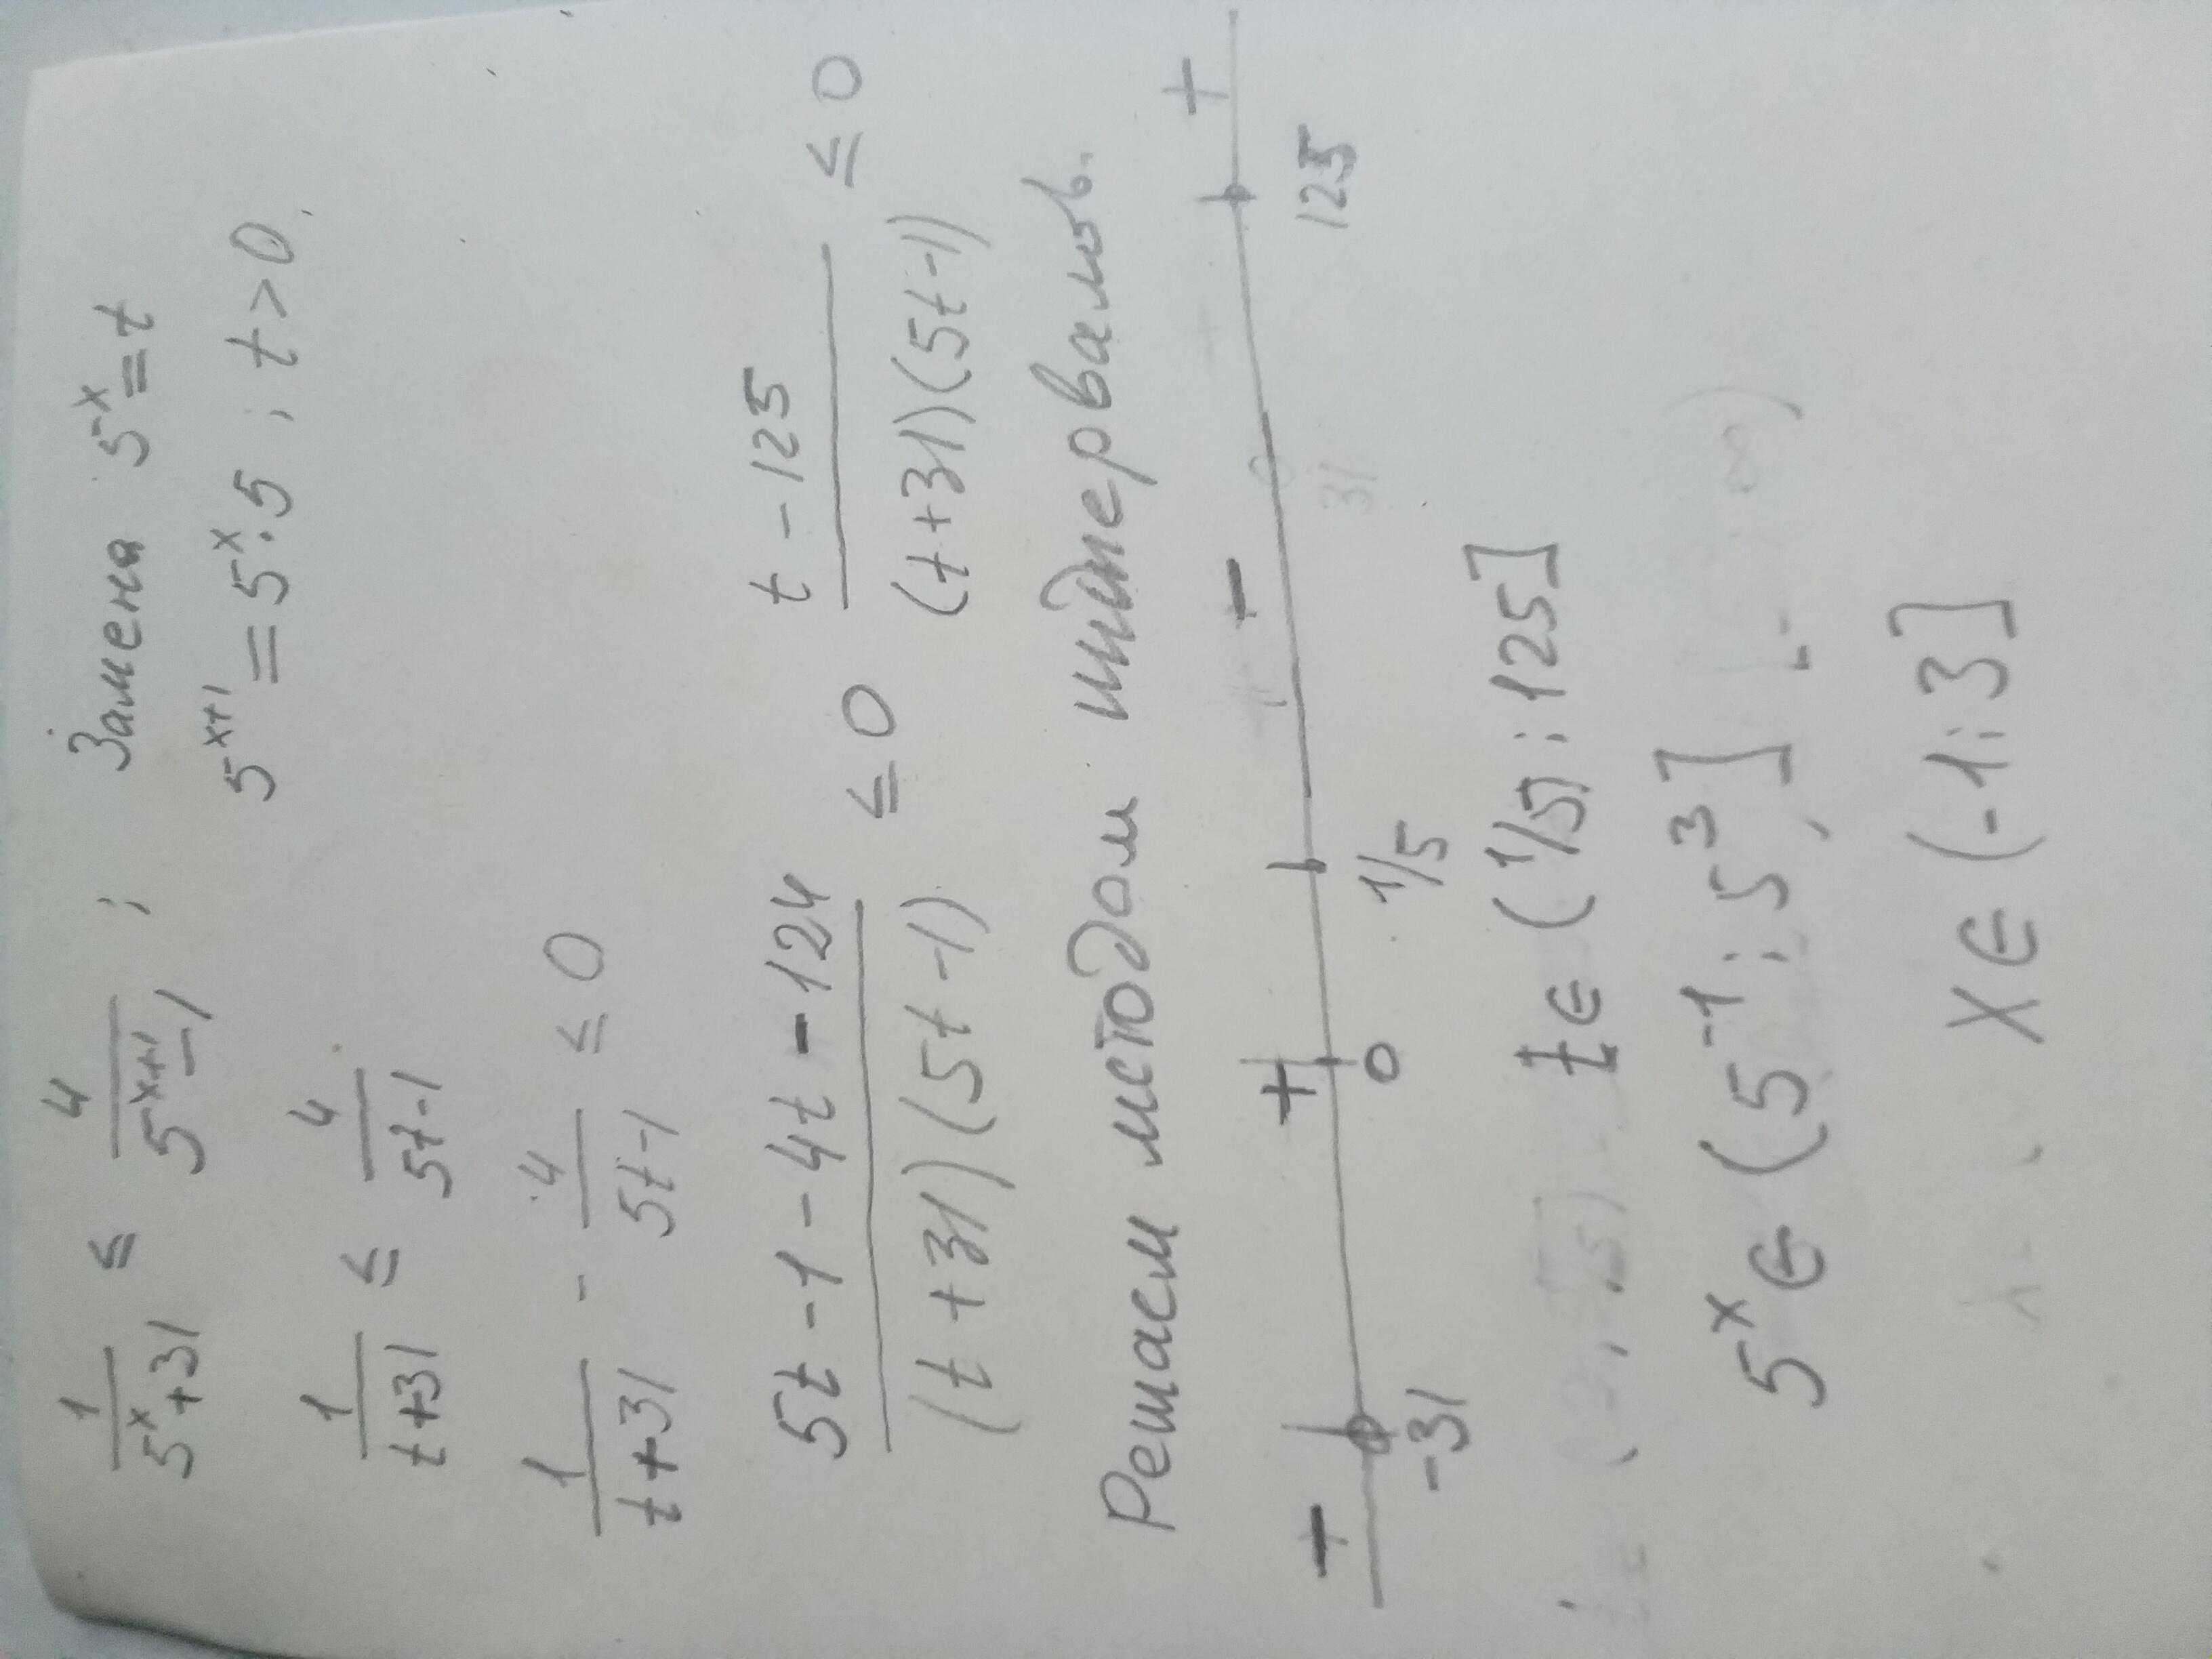 1/(5^x+31) ≤ 4/(5^(x+1)-1) ; Замена 5^x=t
5^(x+1)=5^x·5 ; t>0
1/(t+31) ≤ 4/(5t-1)
1/(t+31) - 4/(5t-1) ≤ 0
(5t-1-4t-124)/((t+31)(5t-1)) ≤ 0 (t-125)/((t+31)(5t-1)) ≤ 0
Решаем методом интервалов.
- + - +
-31 0 1/5 125
t∈(1/5 ; 125]
5^x∈(5^-1 ; 5^3]
x∈(-1; 3]